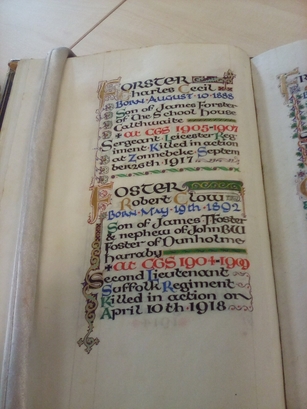 FORSTER
Charles Cecil
Born August 10 1888
Son of James Forster
of The School House
Calthwaite
+ at CGS 1905-1907
Sergeant Leicester Reg
iment Killed in action
at Zonnebeke Septem
ber 26th 1917
FOSTER
Robert Clow
Born May 19th 1892
Son of James Foster
& nephew of John BW
Foster of Dunholme
Harraby
+ at CGS 1904-1909
Second Lieutenant
Suffolk Regiment
Killed in action on
April 10th 1918